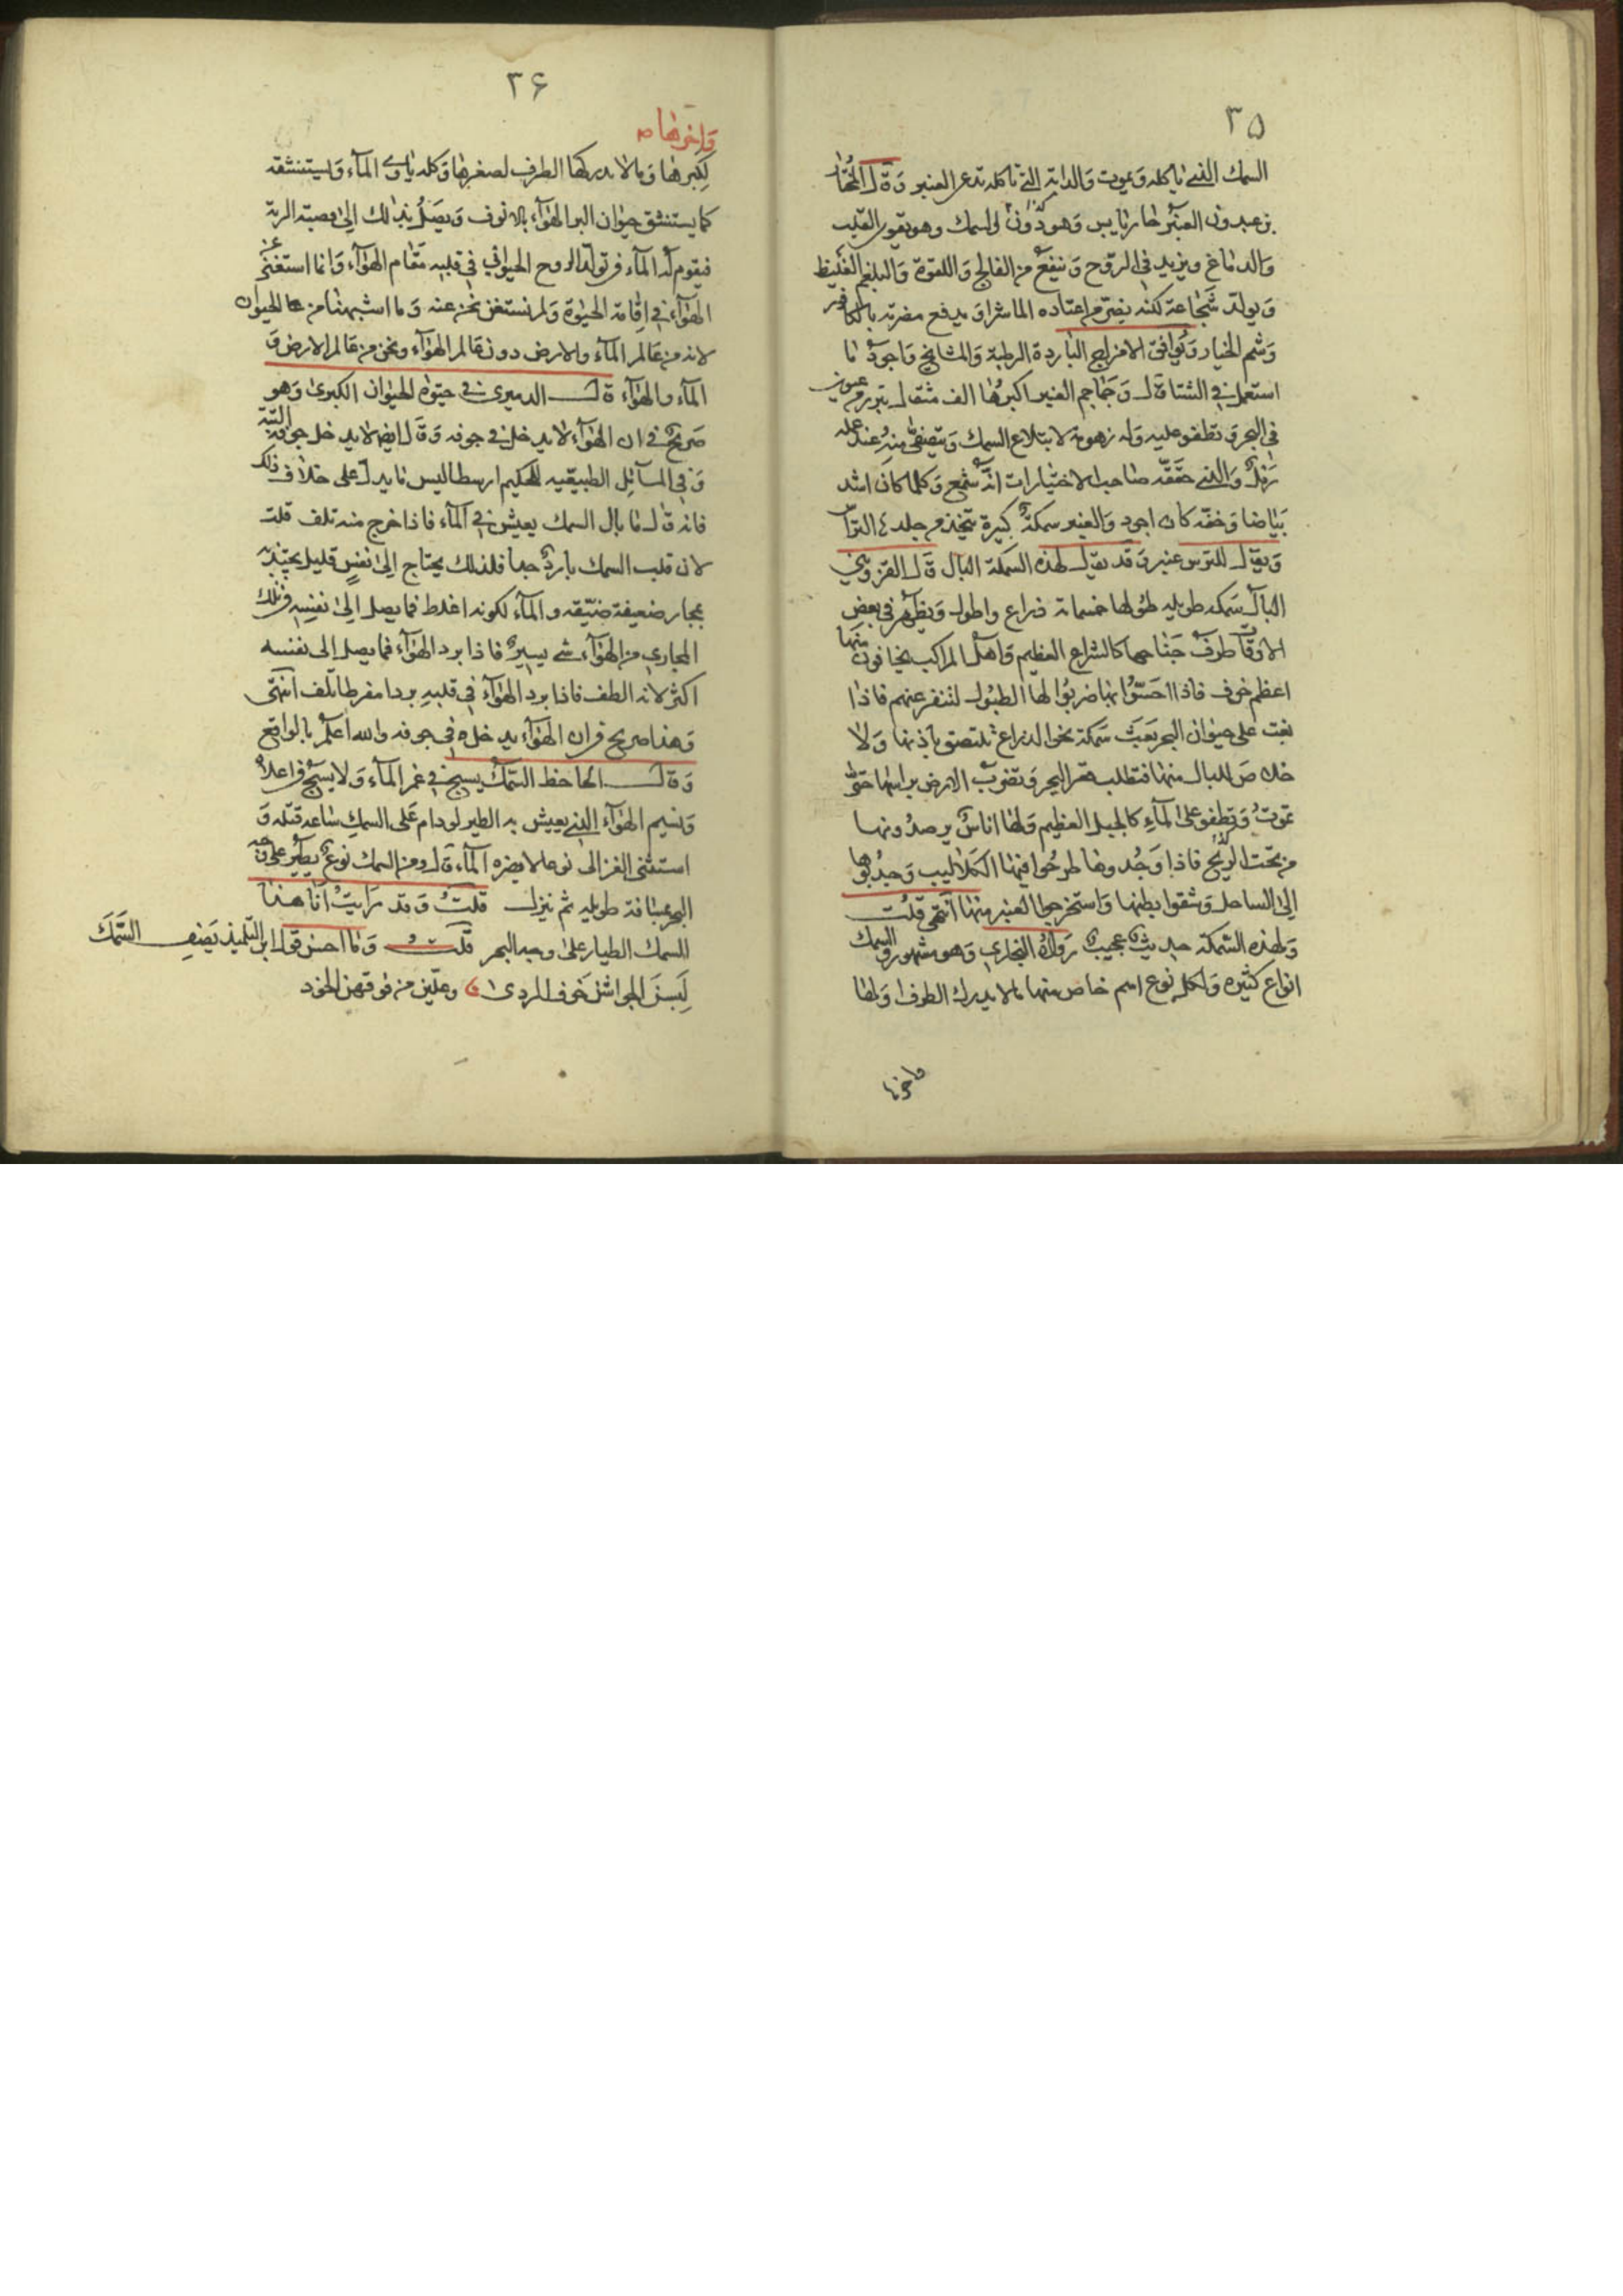 ٣٥
السمك الذي ياكله ويموت والدابة التي تاكله تدعى العنبر وقال المختار
بن عبدون العنبر حار يابس وهو دون المسك وهو يقوي القلب
والدماغ ويزيد في الروح وينفع من الفالج واللقوة والبلغم الغليظ
ويولد شجاعة لكنه يضر من اعتاده الماشرا ويدفع مضرته بالكافور
وشم الخيار ويوافق الامزاج الباردة الرطبة والمشايخ واجود ما
استعمل في الشتا قال وجماجم العنبر اكبرها الف مثقال تبرز من عيون
في البحر وتطفو عليه وله زهومة لابتلاع السمك ويتصفى منه عند عمله
رمل والذي حققه صاحب الاختيارات انه شمع وكلما كان اشد
بياضا وخفة كان اجود والعنبر سمكة كبيرة يتخذ من جلدها التراس
ويقال للترس عنبر وقد يقال لهذه السمكة البال قال القزويني
البال سمكة طويلة طولها خمسماة ذراع واطول ويظهر في بعض
الاوقات طرف جناحها كالشراع العظيم واهل المراكب يخافون منها
اعظم خوف فاذا احسوا بها ضربوا لها الطبول لتنفر عنهم فاذا
بغت على حيوان البحر بعث سمكة نحو الذراع تلتصق باذنها ولا
خلاص للبال منها فتطلب قعر البحر وتضرب الارض براسها حتى
تموت وتطفو على الماء كالجبل العظيم ولها اناس يرصدونها
من تحت الريح فاذا وجدوها طرحوا فيها الكلاليب وجذبوها
الى الساحل وشقوا بطنها واستخرجوا العنبر منها انتهى قلت
ولهذه السمكة حديث عجيب رواه البخاري وهو مشهور والسمك
انواع كثيرة ولكل نوع اسم خاص منها ما لا يدرك الطرف اولها
واخرها
٣۶
واخرها
لكبرها وما لا يدركها الطرف لصغرها وكله ياوي الماء ويستنشقه
كما يستنشق حيوان البر الهواء بالانوف ويصل بذلك الى قصبة الرية
فيقوم له الماء في تولد الروح الحيواني في قلبه مقام الهواء وانما استغنى عن
الهواء في اقامة الحيوة ولم نستغن نحن عنه وما اشبهنا من الحيوان
لانه من عالم الماء والارض دون عالم الهواء ونحن من عالم الارض و
الماء والهواء قال الدميري في حيوة الحيوان الكبرى وهو
صريح في ان الهواء لا يدخل في جوفه وقال ايضا لا يدخل جوفه البتة
وفي المسائل الطبيعيه للحكيم ارسطاليس ما يدل على خلاف ذلك
فانه قال ما بال السمك يعيش في الماء فاذا خرج منه تلف قلت
لان قلب السمك بارد جدا فلذلك يحتاج الى نفس قليل يجتذبه
بمجار ضعيفة ضيقه والماء لكونه اغلظ فما يصل الى نفسه في تلك
المجاري من الهواء شي يسير فاذا برد الهواء فما يصل الى نفسه
اكثر لانه الطف فاذا برد الهواء في قلبه بردا مفرطا تلف انتهى
وهذا صريح في ان الهواء يدخل في جوفه والله اعلم بالواقع
وقال الجاحظ السمك يسبح في غمر الماء ولا يسبح في اعلاه
ونسيم الهواء الذي يعيش به الطير لو دام على السمك ساعة قتله و
استثنى الغزالي نوعا لا يضره الماء قال ومن السمك نوع يطير على وجه
البحر مسافة طويله ثم ينزل قلت وقد رايت انا هذا
السمك الطيار على وجه البحر قلت وما احسن قول ابن التلميذ يصف السمك
لبسن الجواشن خوف الردى وعلين من فوقهن الخوذ